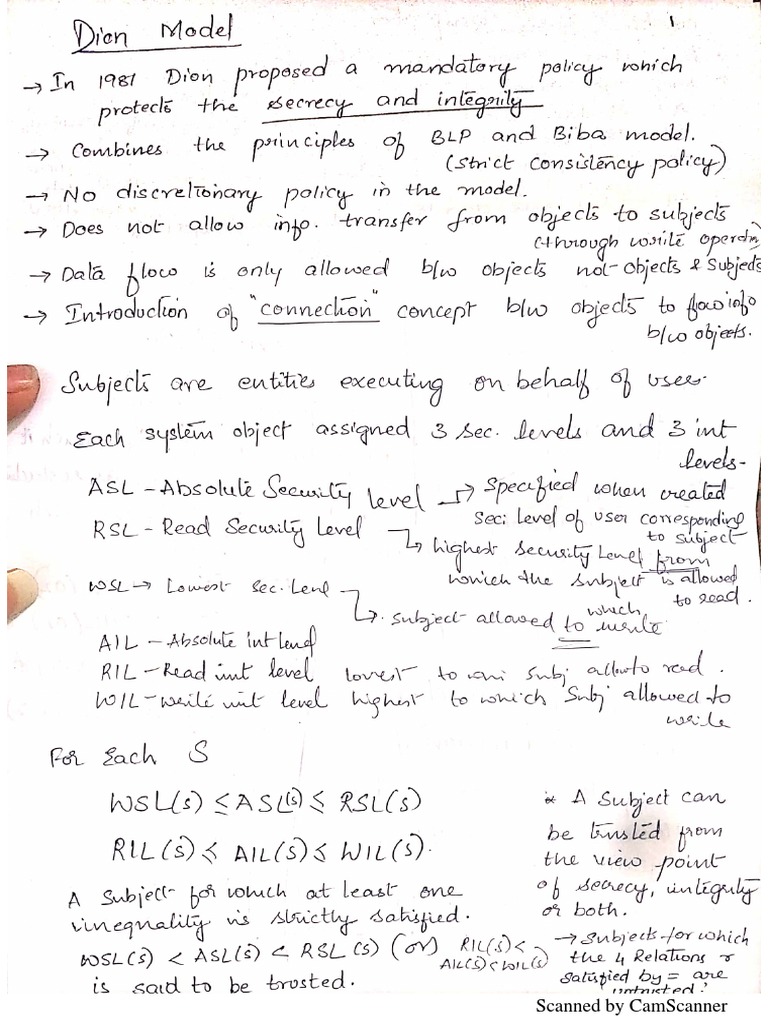 1
Dion Model
→ In 1981 Dion proposed a mandatory policy which
protects the secrecy and integrity
→ Combines the principles of BLP and Biba model.
(strict consistency policy)
→ No discretionary policy in the model.
→ Does not allow info. transfer from objects to subjects
(through write operatn)
→ Data flow is only allowed b/w objects not objects & Subjects
→ Introduction of "connection" concept b/w objects to flow info
b/w objects.
Subjects are entities executing on behalf of user.
Each system object assigned 3 sec. levels and 3 int
levels-
ASL - Absolute Security level → Specified when created
sec: level of user corresponding
to subject
RSL - Read Security Level
↳ highest security level from
which the subject is allowed
to read.
WSL → Lowest sec. level
↳ subject allowed to which write
AIL - Absolute int level
RIL - Read int level lowest to subj allow to read.
WIL - write int level highest to which Subj allowed to
write
For Each S
WSL(s) ≤ ASL(s) ≤ RSL(s)
RIL(s) ≤ AIL(s) ≤ WIL(s).
A Subject for which at least one
inequality is strictly satisfied.
WSL(s) < ASL(s) < RSL(s) (or) RIL(s) <
AIL(s) < WIL(s)
is said to be trusted.
* A Subject can
be trusted from
the view point
of secrecy, integrity
or both.
→ Subjects for which
the 4 Relations r
satisfied by = are
untrusted.
Scanned by CamScanner